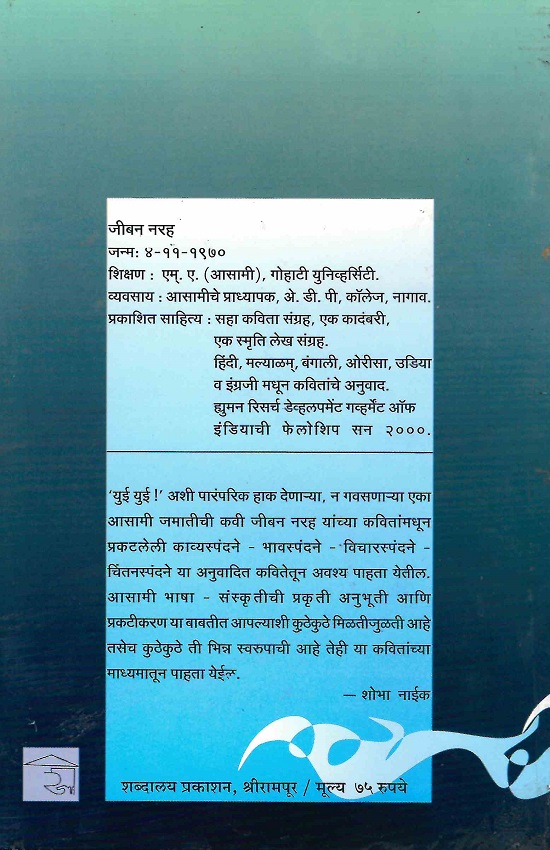 जीबन नरह
जन्म: ४-११-१९७०
शिक्षण : एम्. ए. (आसामी), गोहाटी युनिव्हर्सिटी.
व्यवसाय : आसामीचे प्राध्यापक, अे. डी. पी, कॉलेज, नागाव.
प्रकाशित साहित्य : सहा कविता संग्रह, एक कादंबरी,
एक स्मृति लेख संग्रह.
हिंदी, मल्याळम्, बंगाली, ओरीसा, उडिया
व इंग्रजी मधून कवितांचे अनुवाद.
ह्युमन रिसर्च डेव्हलपमेंट गव्हर्मेंट ऑफ
इंडियाची फेलोशिप सन २०००.
'युई युई !' अशी पारंपरिक हाक देणाऱ्या, न गवसणाऱ्या एका
आसामी जमातीची कवी जीबन नरह यांच्या कवितांमधून
प्रकटलेली काव्यस्पंदने - भावस्पंदने - विचारस्पंदने -
चिंतनस्पंदने या अनुवादित कवितेतून अवश्य पाहता येतील.
आसामी भाषा - संस्कृतीची प्रकृती अनुभूती आणि
प्रकटीकरण या बाबतीत आपल्याशी कुठेकुठे मिळतीजुळती आहे
तसेच कुठेकुठे ती भिन्न स्वरुपाची आहे तेही या कवितांच्या
माध्यमातून पाहता येईल.
– शोभा नाईक
शब्दालय प्रकाशन, श्रीरामपूर / मूल्य ७५ रुपये